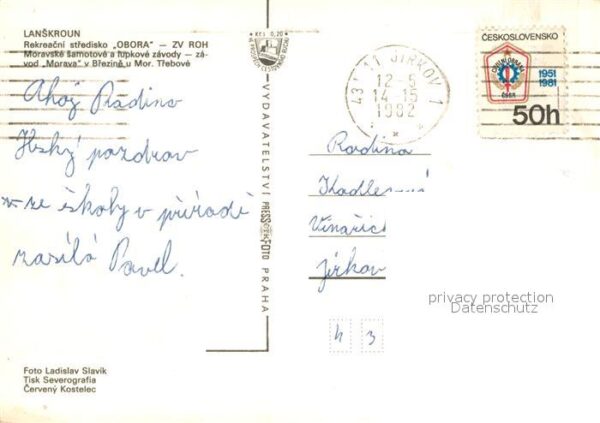 LANŠKROUN
Rekreační středisko „OBORA" — ZV ROH
Moravské šamotové a lupkové závody — zá-
vod „Morava" v Březině u Mor. Třebové
Kčs 0,20
Ahoj Radino
pozdrav
ze školy v přírodě
zasílá Pavel.
VYDAVATELSTVÍ PRESSFOTO PRAHA
431 11 JIRKOV 1
12-5
14-15
1982
ČESKOSLOVENSKO
1951
1981
ČSSR
50h
Rodina
Vinařic
Jirkov
h 3
privacy protection
Datenschutz
Foto Ladislav Slavík
Tisk Severografia
Červený Kostelec